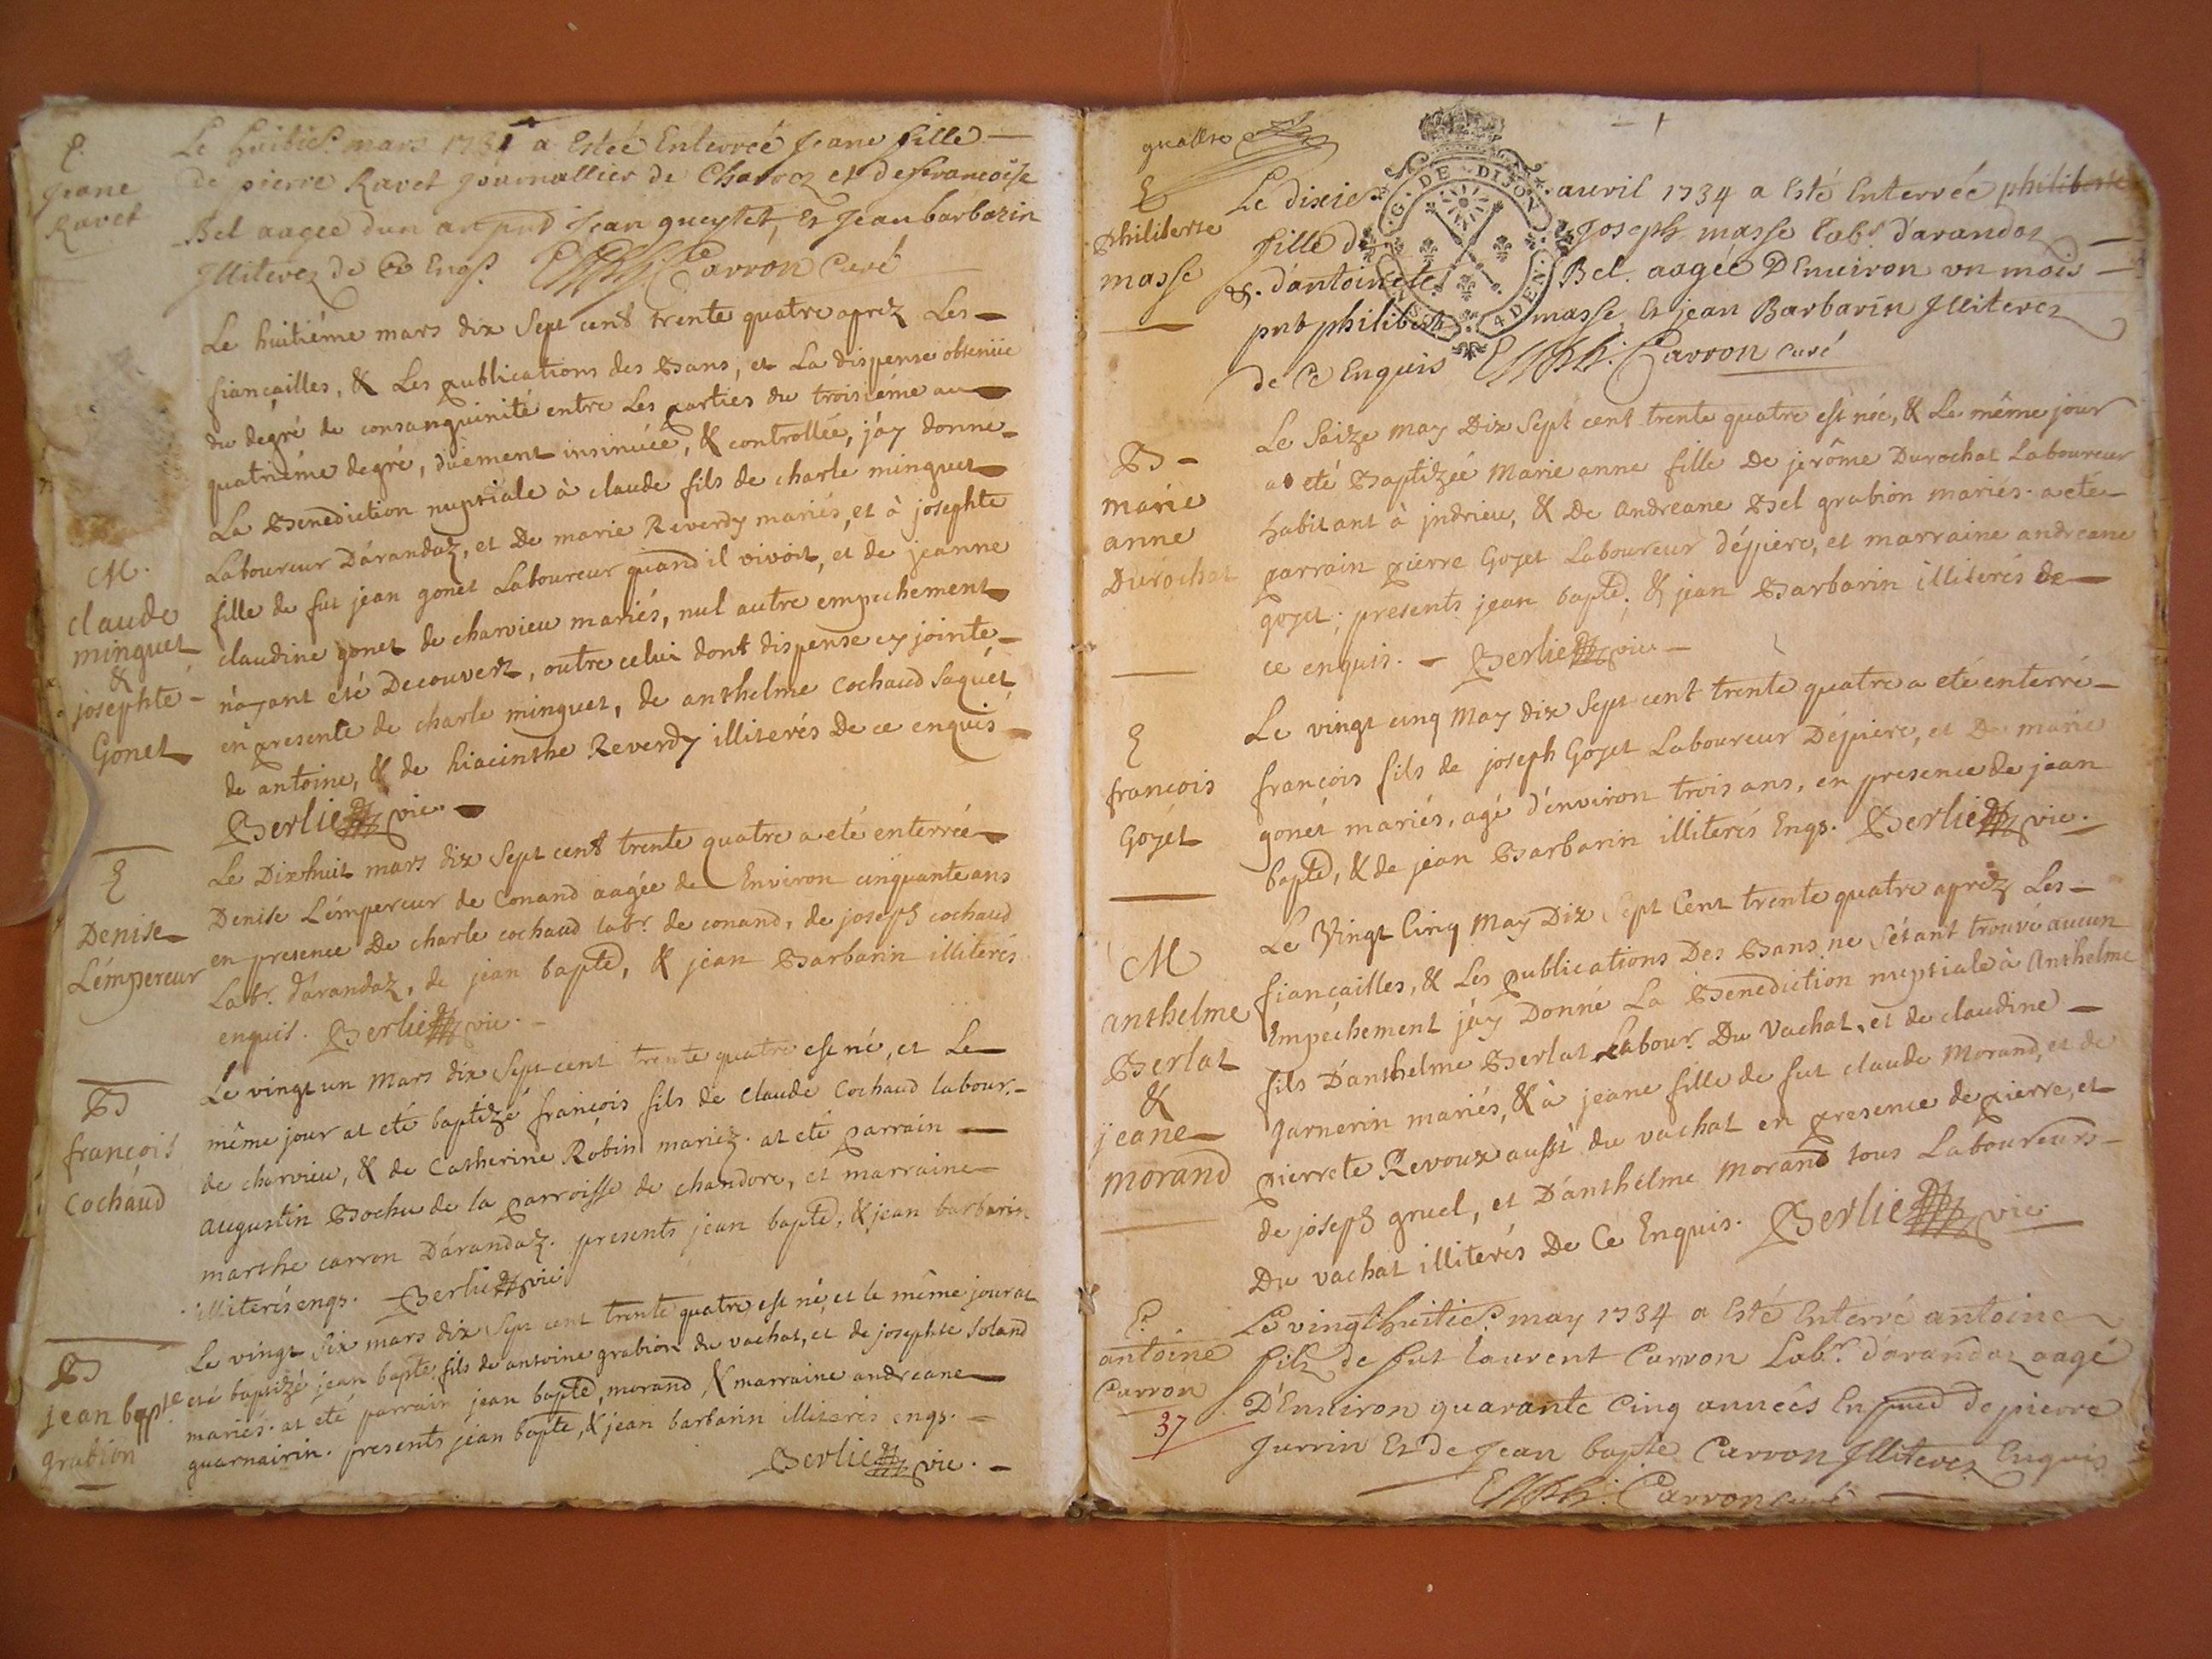 E.
Jeane
Ravet
Le huitie. mars 1734 a Estée Enterrée Jeane fille
de pierre Ravet journallier de et de francoise
Bel aagee dun an pnt Jean queylet, Et Jean barbarin
Illiterez de Ce Enqs. Carron Curé
M.
claude
minguet
&
josephte
Gonet
Le huitiéme mars dix Sept cent trente quatre aprez Les
fiançailles, & Les publications des Bans, et La dispense obtenüe
du degré de consanguinité entre Les parties du troisiéme au
quatriéme degré, düement insinuée, & controllée, j'áy donné
La Benediction nuptiale à claude fils de charle minguet
Laboureur D'arandaz, et De marie Reverdy mariés, et à josephte
fille de fut jean gonet Laboureur quand il vivoit, et de jeanne
claudine gonet de charvieu mariés, nul autre empechement
n'ayant eté Decouvert, outre celui dont dispense cy jointe
en presente de charle minguet, de anthelme cochaud Saquet,
de antoine, & de hiacinthe Reverdy illiterés De ce enquis
Berlie vic.
E
Denise
Lémpereur
Le Dixhuit mars dix Sept cent trente quatre a eté enterrée
Denise Lémpereur de Conand aagée de Environ cinquante ans
en presence De charle cochaud labr. de conand, de joseph cochaud
Labr. d'arandaz, de jean bapte, & jean Barbarin illiterés
enquis. Berlie vic.
B
françois
Cochaud
Le vingt un Mars dix Sept cent trente quatre est né, et Le
même jour at eté baptizé françois fils de Claude Cochaud labour.
de charvieu, & de Catherine Robin mariez. at eté parrain
Augustin Bochu de la parroisse de chandore, et marraine
marthe carron D'arandaz. presents jean bapte, & jean barbarin
illiterés enqs. Berlie vic.
B
jean bapte
grabion
Le vingt Six mars dix Sept cent trente quatre est né, et le même jour at
eté baptizé jean bapte, fils de antoine grabion du vachat, et de josephte Soland
mariés. at eté parrain jean bapte, morand, & marraine andreane
guarnairin. presents jean bapte, & jean barbarin illiterés enqs.
Berlie vic.
quattre
G. DE DIJON
4 DEN.
E
philiberte
masse
Le dixie. auril 1734 a Esté Enterrée philiberte
fille de Joseph masse labr. d'arandaz
& d'antoinete Bel. aagée D'Enuiron un mois
pnt philibert masse Et jean Barbarin Illiterez
de Ce Enquis Carron curé
B
marie
anne
Durochat
Le Saize may Dix Sept cent trente quatre est née, & Le même jour
a eté Baptizée Marie anne fille De jerôme Durochat Laboureur
habitant à jndrieu, & De Andreane Bel grabion mariés. a eté
parrain pierre Gojet Laboureur d'épiere, et marraine andreane
gojet; presents jean bapte. & jean Barbarin illiterés de
ce enquis. Berlie vic.
E
françois
Gojet
Le vingt cinq May dix Sept cent trente quatre a eté enterré
françois fils de joseph Gojet Laboureur D'épiere, et De marie
gonet mariés, agé d'environ trois ans, en presence de jean
bapte, & de jean Barbarin illiterés Enqs. Berlie vic.
M
anthelme
Berlat
&
jeane
morand
Le Vingt Cinq May Dix Sept Cent trente quatre aprez Les
fiançailles, & Les publications Des Bans ne s'étant trouvé aucun
Empéchement j'áy Donné La Benediction nuptiale à Anthelme
fils D'anthelme Berlat Labour. Du Vachat, et de claudine
garnerin mariés, & à jeane fille de fut claude Morand, et de
pierrete Revoux aussi du vachat en presence de pierre, et
de joseph gruel, et D'anthélme Morand tous Laboureurs
Du vachat illiterés De Ce Enquis. Berlie vic.
E.
antoine
Carron
37
Le vingthuitie. may 1734 a Esté Enterré antoine
filz de fut laurent Carron Labr. d'arandaz aagé
D'Enuiron quarante Cinq années En de pierre
Jurrin Et de Jean bapte Carron Illiterez Enquis
Carron curé